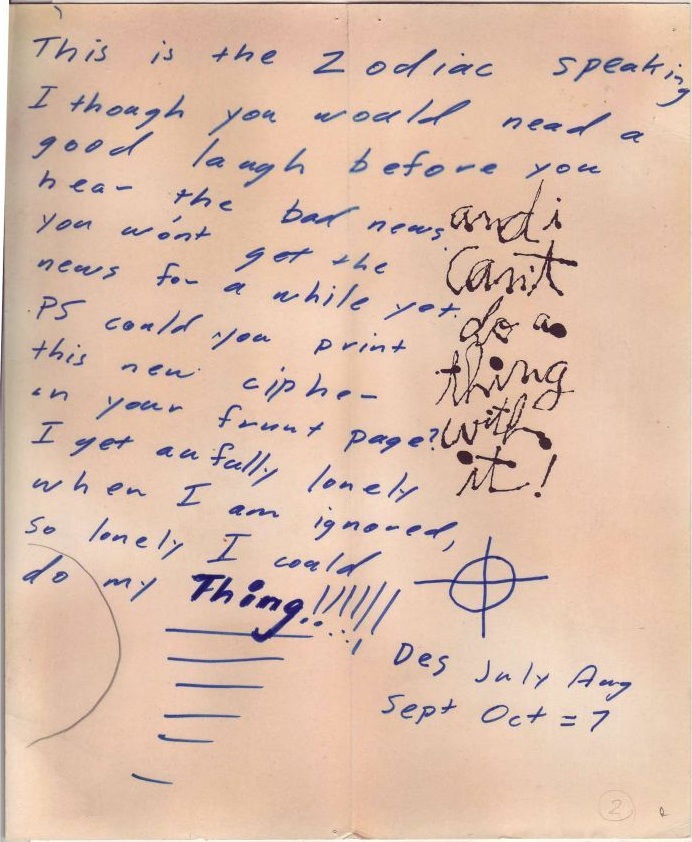 This is the Zodiac speaking
I though you would nead a
good laugh before you
hear the bad news.
you won't get the
news for a while yet.
PS could you print
this new cipher
on your frunt page?
I get aufully lonely
when I am ignored,
so lonely I could
do my Thing!!!!!!
and i
can't
do a
thing
with
it!
Des July Aug
Sept Oct = 7
2